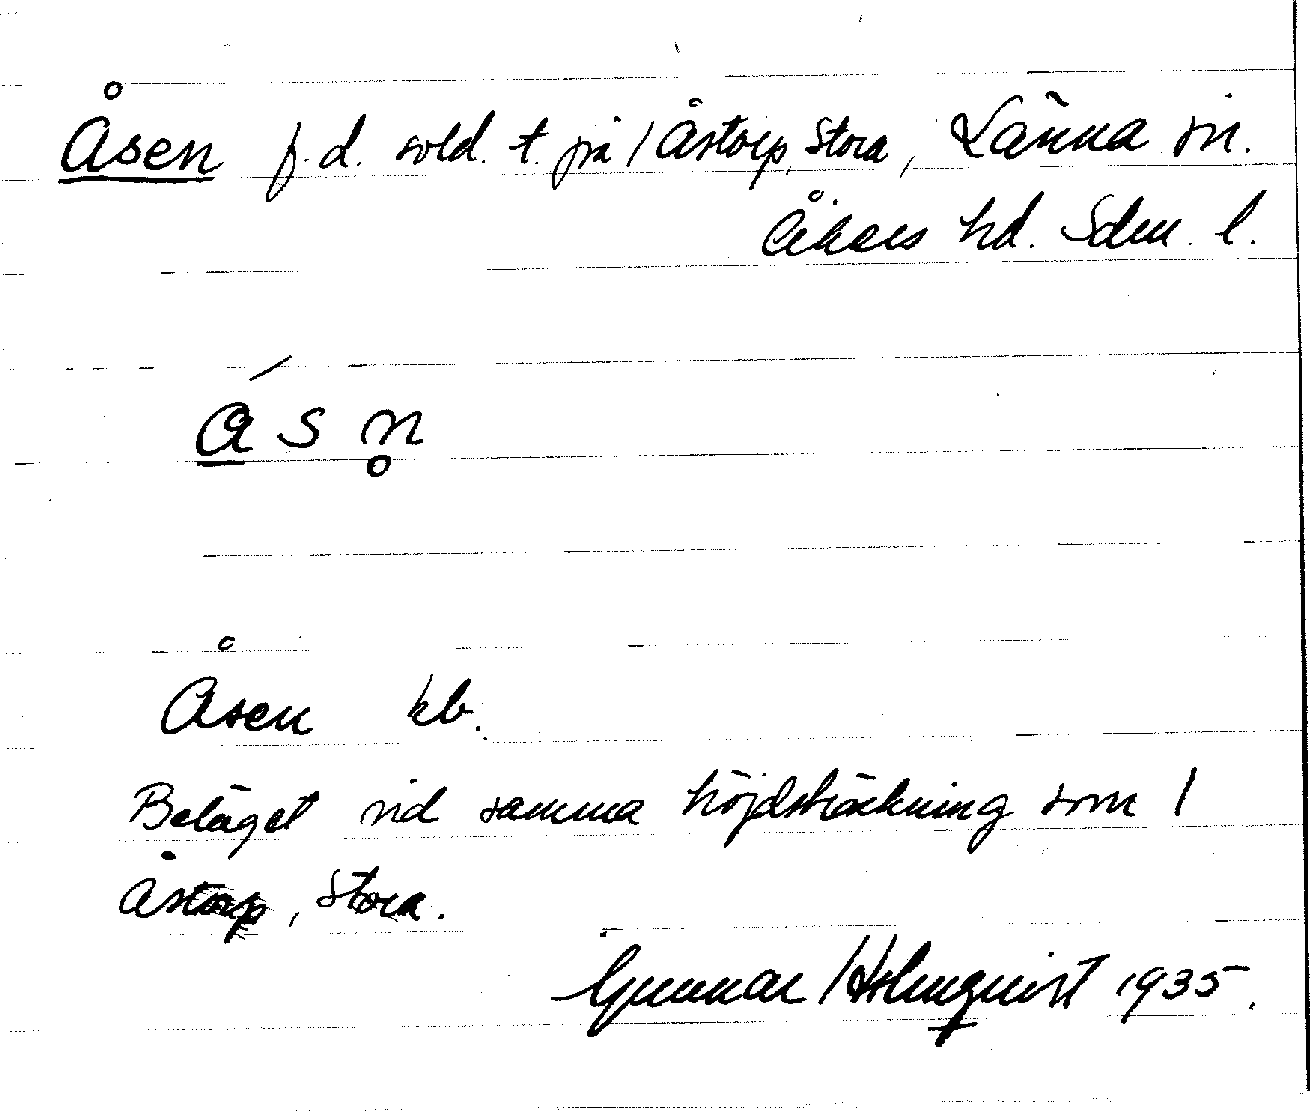 Åsen f.d. sold. t. på 1 Åstorp, Stora, Länna sn.
Åkers hd. Sdm. l.
á s n̥
Åsen kb.
Beläget vid samma höjdsträckning som 1
Åstorp, Stora.
Gunnar Holmquist 1935.